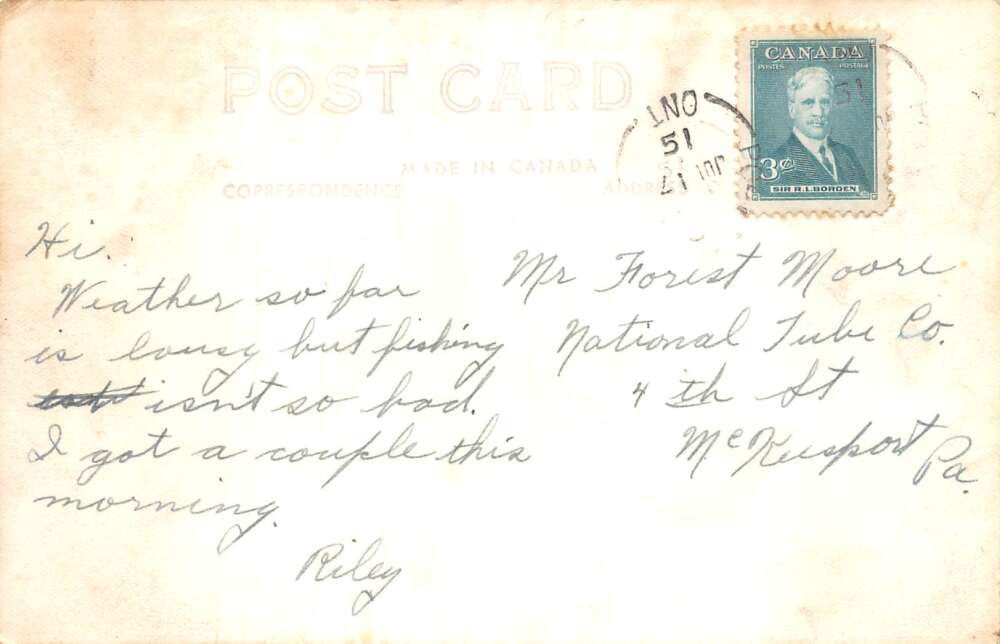 POST CARD
MADE IN CANADA
CORRESPONDENCE
ADDRESS
CANADA
POSTES POSTAGE
3¢
SIR R.L.BORDEN
ONT
51
JUL
17
Hi.
Weather so far
is lousy but fishing
isn't so bad.
I got a couple this
morning.
Riley
Mr Forest Moore
National Tube Co.
4th St
McKeesport Pa.